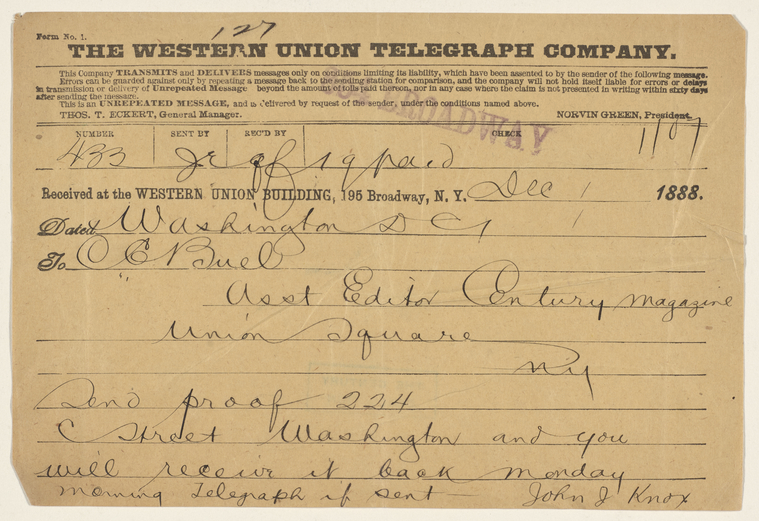 Form No. 1.
127
THE WESTERN UNION TELEGRAPH COMPANY.
This Company TRANSMITS and DELIVERS messages only on conditions limiting its liability, which have been assented to by the sender of the following message.
Errors can be guarded against only by repeating a message back to the sending station for comparison, and the company will not hold itself liable for errors or delays
in transmission or delivery of Unrepeated Message beyond the amount of tolls paid thereon, nor in any case where the claim is not presented in writing within sixty days
after sending the message.
This is an UNREPEATED MESSAGE, and is delivered by request of the sender, under the conditions named above.
THOS. T. ECKERT, General Manager. NORVIN GREEN, President.
BROADWAY
NUMBER SENT BY REC'D BY CHECK
433 paid 1107
Received at the WESTERN UNION BUILDING, 195 Broadway, N. Y. Dec 1 1888.
Dated Washington D C
To C C Buel
Asst Editor Century Magazine
Union Square
NY
Send proof 224
C Street Washington and you
will receive it back monday
morning Telegraph if sent — John J Knox